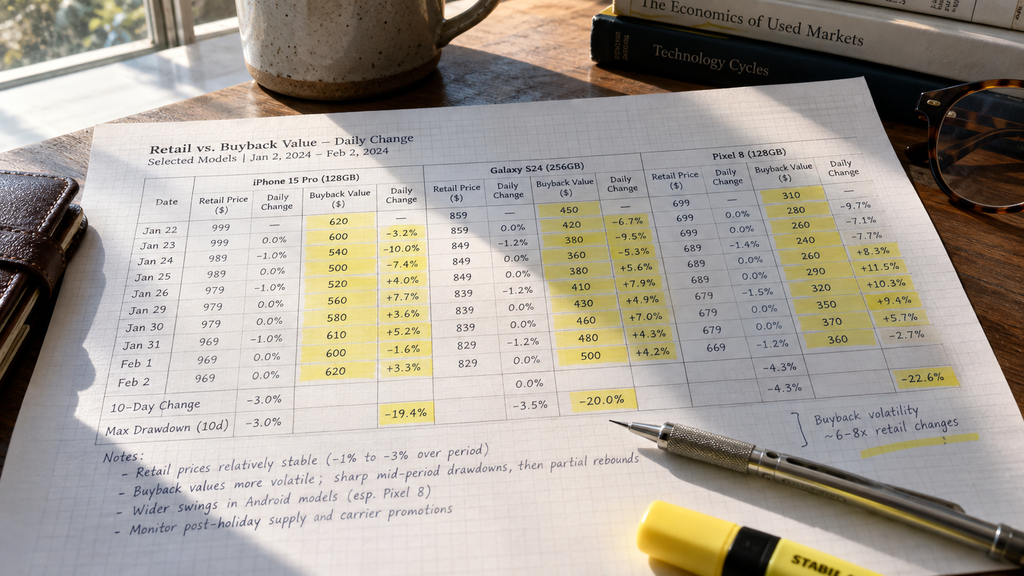 The Economics of Used Markets
Technology Cycles
Retail vs. Buyback Value – Daily Change
Selected Models | Jan 2, 2024 – Feb 2, 2024
iPhone 15 Pro (128GB) Galaxy S24 (256GB) Pixel 8 (128GB)
Date Retail Price ($) Daily Change Buyback Value ($) Daily Change Retail Price ($) Daily Change Buyback Value ($) Daily Change Retail Price ($) Daily Change Buyback Value ($) Daily Change
Jan 22 999 — 620 — 859 — 450 — 699 — 310 —
Jan 23 999 0.0% 600 -3.2% 859 0.0% 420 -6.7% 699 0.0% 280 -9.7%
Jan 24 989 -1.0% 540 -10.0% 849 -1.2% 380 -9.5% 699 0.0% 260 -7.1%
Jan 25 989 0.0% 500 -7.4% 849 0.0% 360 -5.3% 689 -1.4% 240 -7.7%
Jan 26 979 -1.0% 520 +4.0% 849 0.0% 380 +5.6% 689 0.0% 260 +8.3%
Jan 29 979 0.0% 560 +7.7% 839 -1.2% 410 +7.9% 689 0.0% 290 +11.5%
Jan 30 979 0.0% 580 +3.6% 839 0.0% 430 +4.9% 679 -1.5% 320 +10.3%
Jan 31 969 -1.0% 610 +5.2% 839 0.0% 460 +7.0% 679 0.0% 350 +9.4%
Feb 1 969 0.0% 600 -1.6% 829 -1.2% 480 +4.3% 679 0.0% 370 +5.7%
Feb 2 969 0.0% 620 +3.3% 829 0.0% 500 +4.2% 669 -1.2% 360 -2.7%
10-Day Change -3.0% 0.0% -4.3%
Max Drawdown (10d) -3.0% -19.4% -3.5% -20.0% -4.3% -22.6%
Buyback volatility
~6-8x retail changes
Notes:
- Retail prices relatively stable (-1% to -3% over period)
- Buyback values more volatile; sharp mid-period drawdowns, then partial rebounds
- Wider swings in Android models (esp. Pixel 8)
- Monitor post-holiday supply and carrier promotions